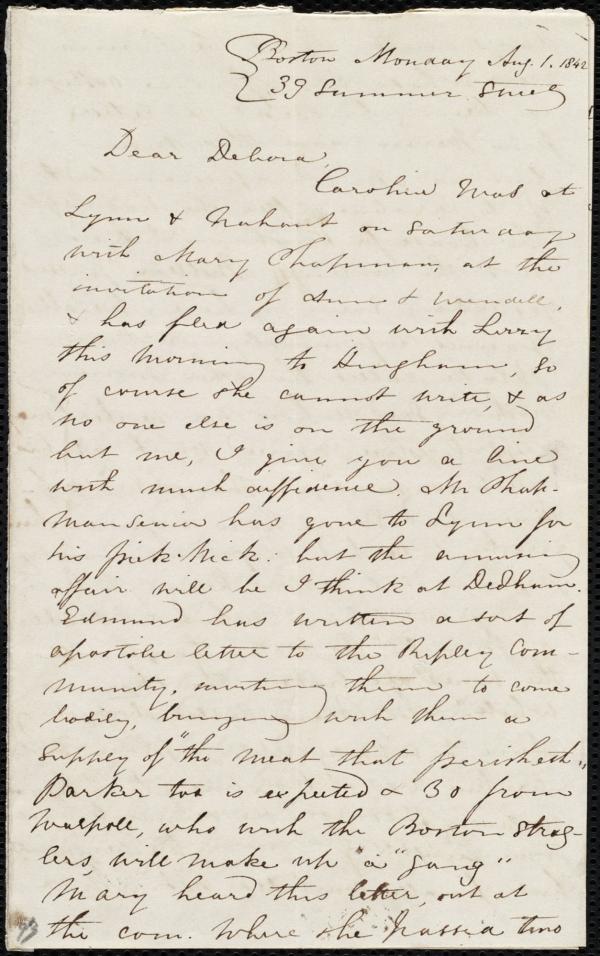 Boston Monday Aug. 1. 1842
39 Summer Street
Dear Debora,
Caroline was at
Lynn & Nahant on Saturday
with Mary Chapman, at the
invitation of Ann & Wendell,
& has fled again with Lizzy
this morning to Hingham, so
of course she cannot write, & as
no one else is on the ground
but me, I give you a line
with much diffidence. Mr Chap-
man senior has gone to Lynn for
his pick-nick: but the amusing
affair will be I think at Dedham.
Edmund has written a sort of
apostolic letter to the Ripley Com-
munity, inviting them to come
bodily, bringing with them a
supply of "the meat that perisheth"
Parker too is expected & 30 from
Walpole, who with the Boston strag-
lers, will make up a "gang"
Mary heard this letter, out at
the com. where she passed two